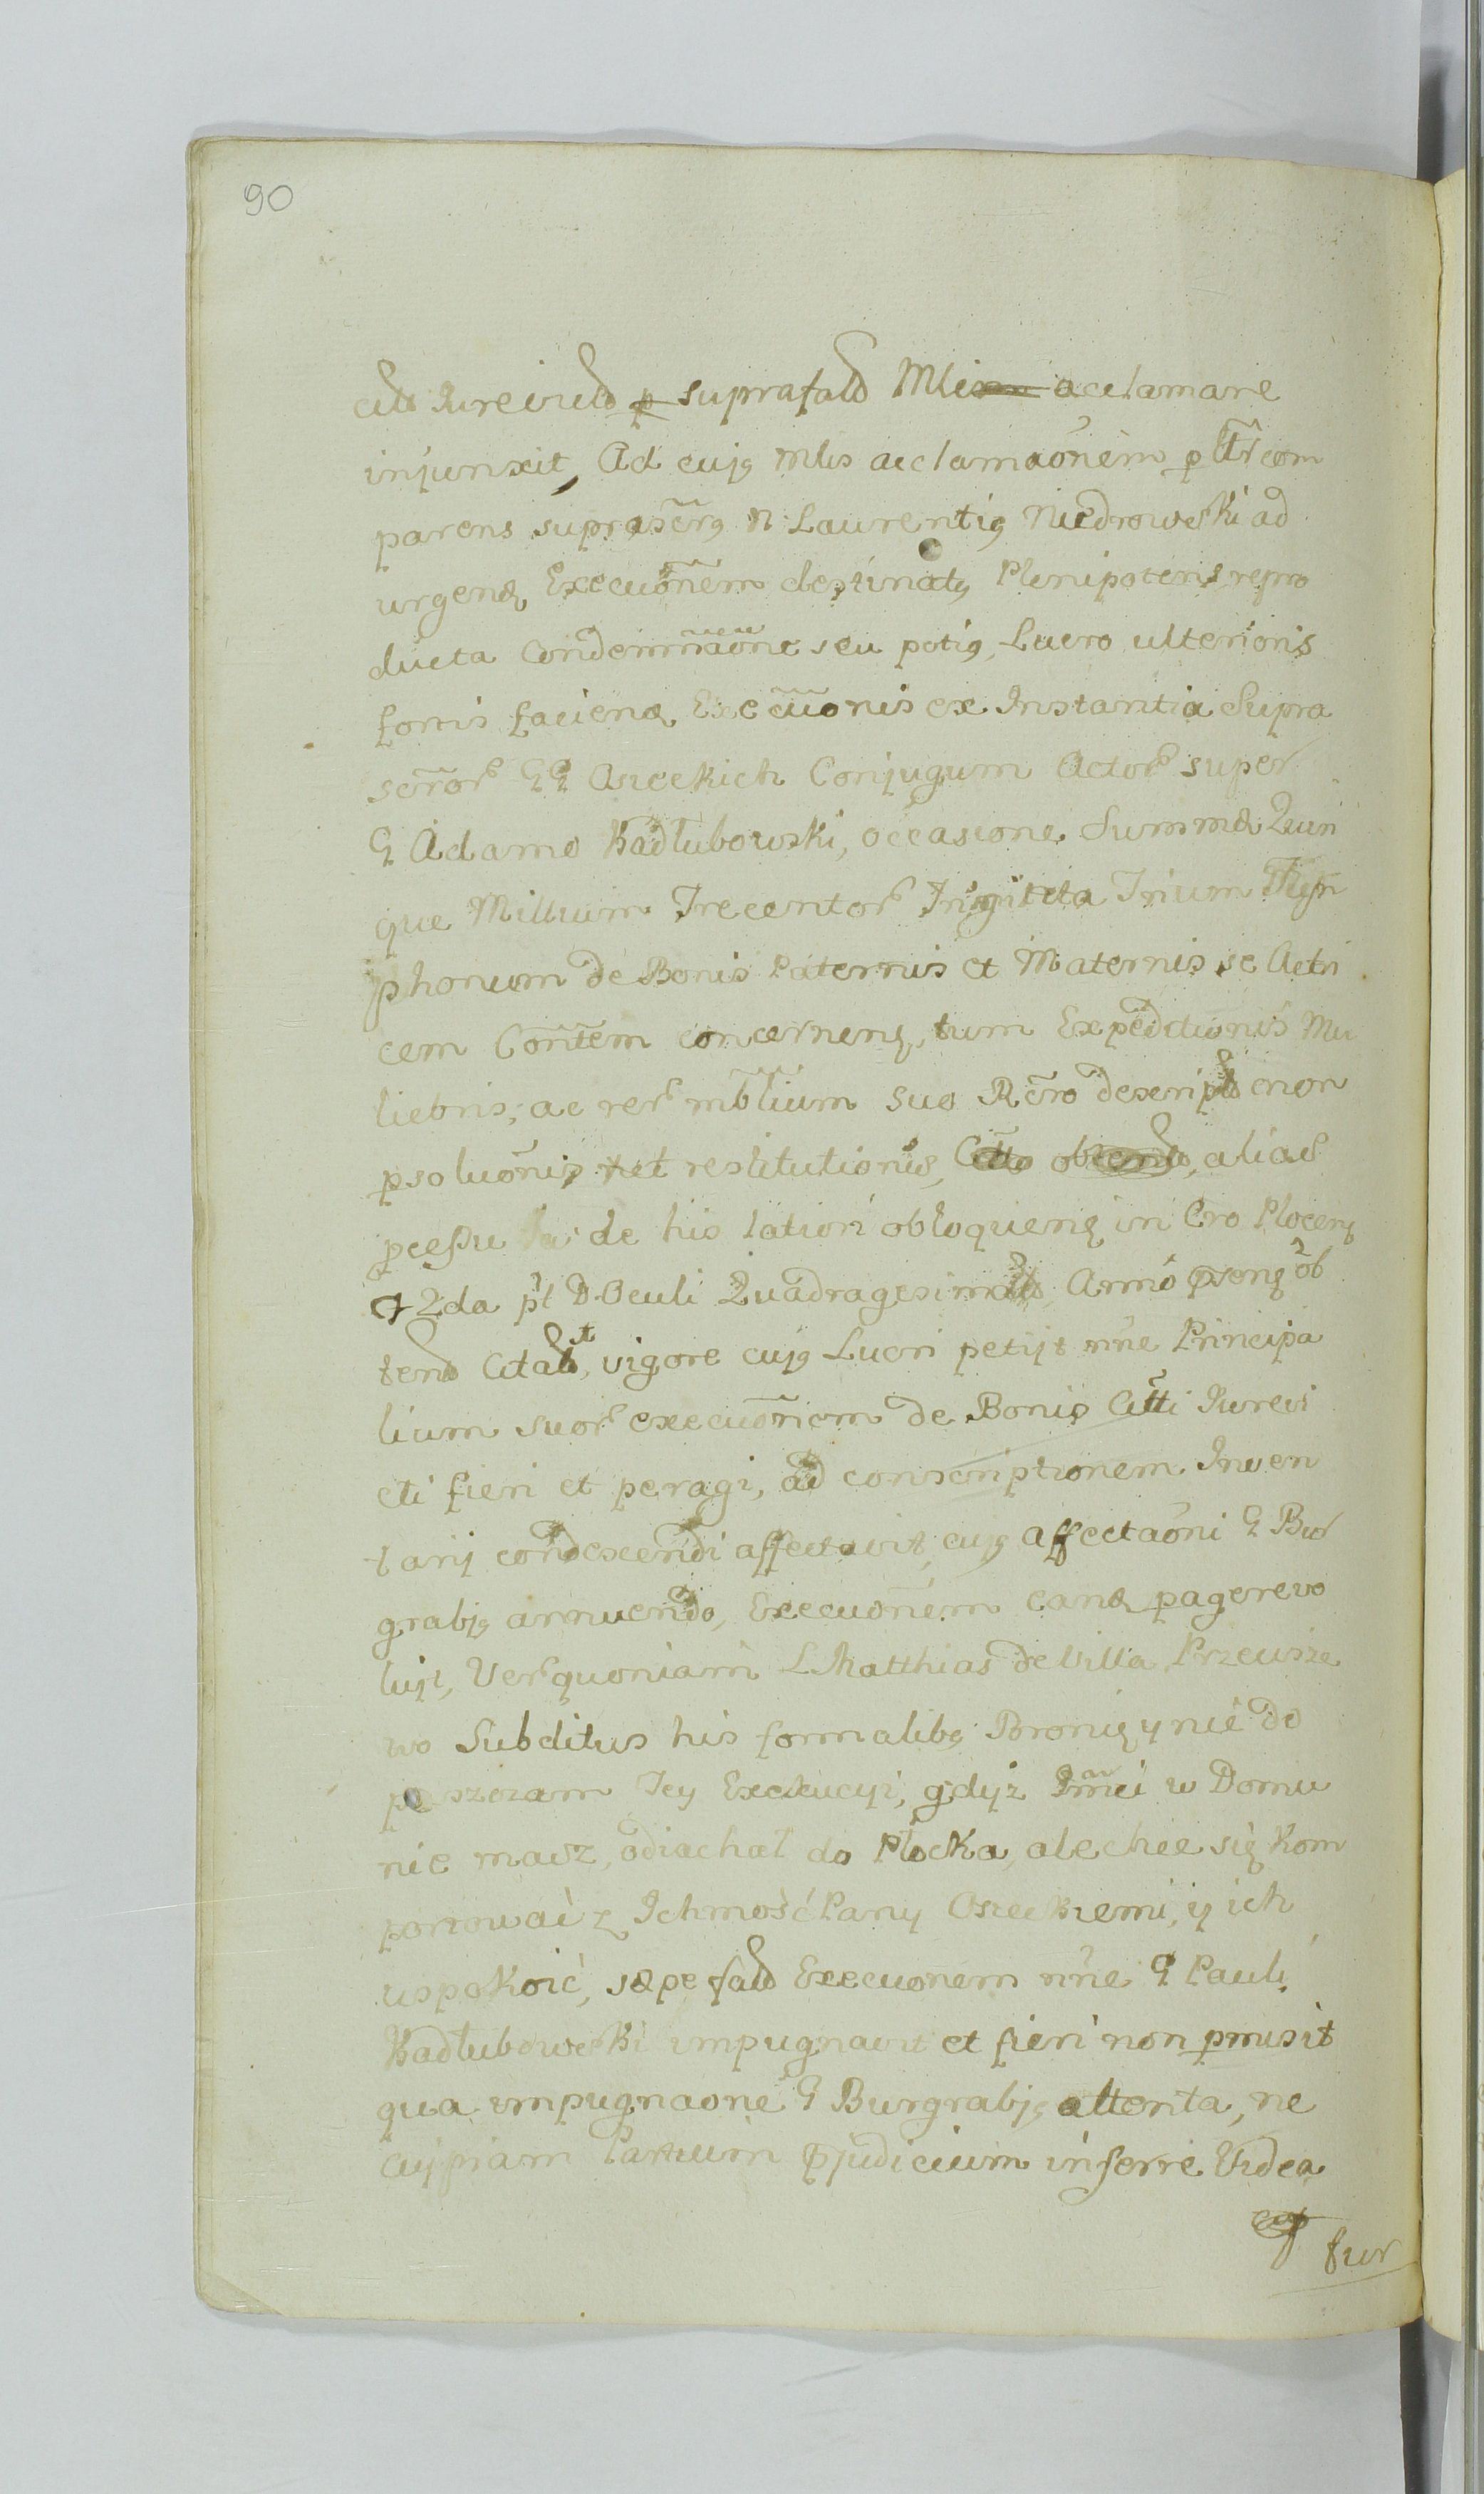 90
injunxit, Ad cujq Mlis acclamaõnem p com
parens suprascrq N Laurentiq Niedrowski ad
urgenq Execuõnem destinatq Plenipotens repro
ducta Condemnaõne seu potiq Lucro ulterioris
foris facienq Execuõnis ex Instantia Supra
Conjugum Actor super
G Adamo Kadłubowski, occasione Summæ Quin
que Millium Trecentor Triginta Trium Tym
phonum de Bonis Paternis et Maternis se Actri
cem Conñtem concernenq, tum Expeditionis Mu
liebris, ac rer mblium suo Rero descript
psoluõnis vel restitutionis, alias
pcessu de his latiori obloquenq in Cro Plocenq
2da pt D. Oculi Quadragesimali Anno psenq ob
tend Citat, vigore cujq Lucri petijt nñe Principa
lium suor execuõnem de Bonis Citti Jurevi
cti fieri et peragi, ad conscriptionem Inven
tarij condescendi affectavit, cujq affectaõni G Bur
grabjq annuendo, Execuõnem eanq pagere vo
lujt, Ver quoniam L. Matthias de Villa
wo Subditus his formalibq Bronię y nie do
puszczam Tey Exekucyi, gdyż Jmci w Domu
nie masz, odiachał do Płocka, ale chce się kom
portować z Ichmość Pany Osieckiemi, y ich
uspokoić, sæpe fatd Execuonem nñe G Pauli
Kadłubowski impugnavit et fieri non pmisit
qua impugnaone G Burgrabjq attenta, ne
cujpiam Partium pjudicium inferre Videa
tur